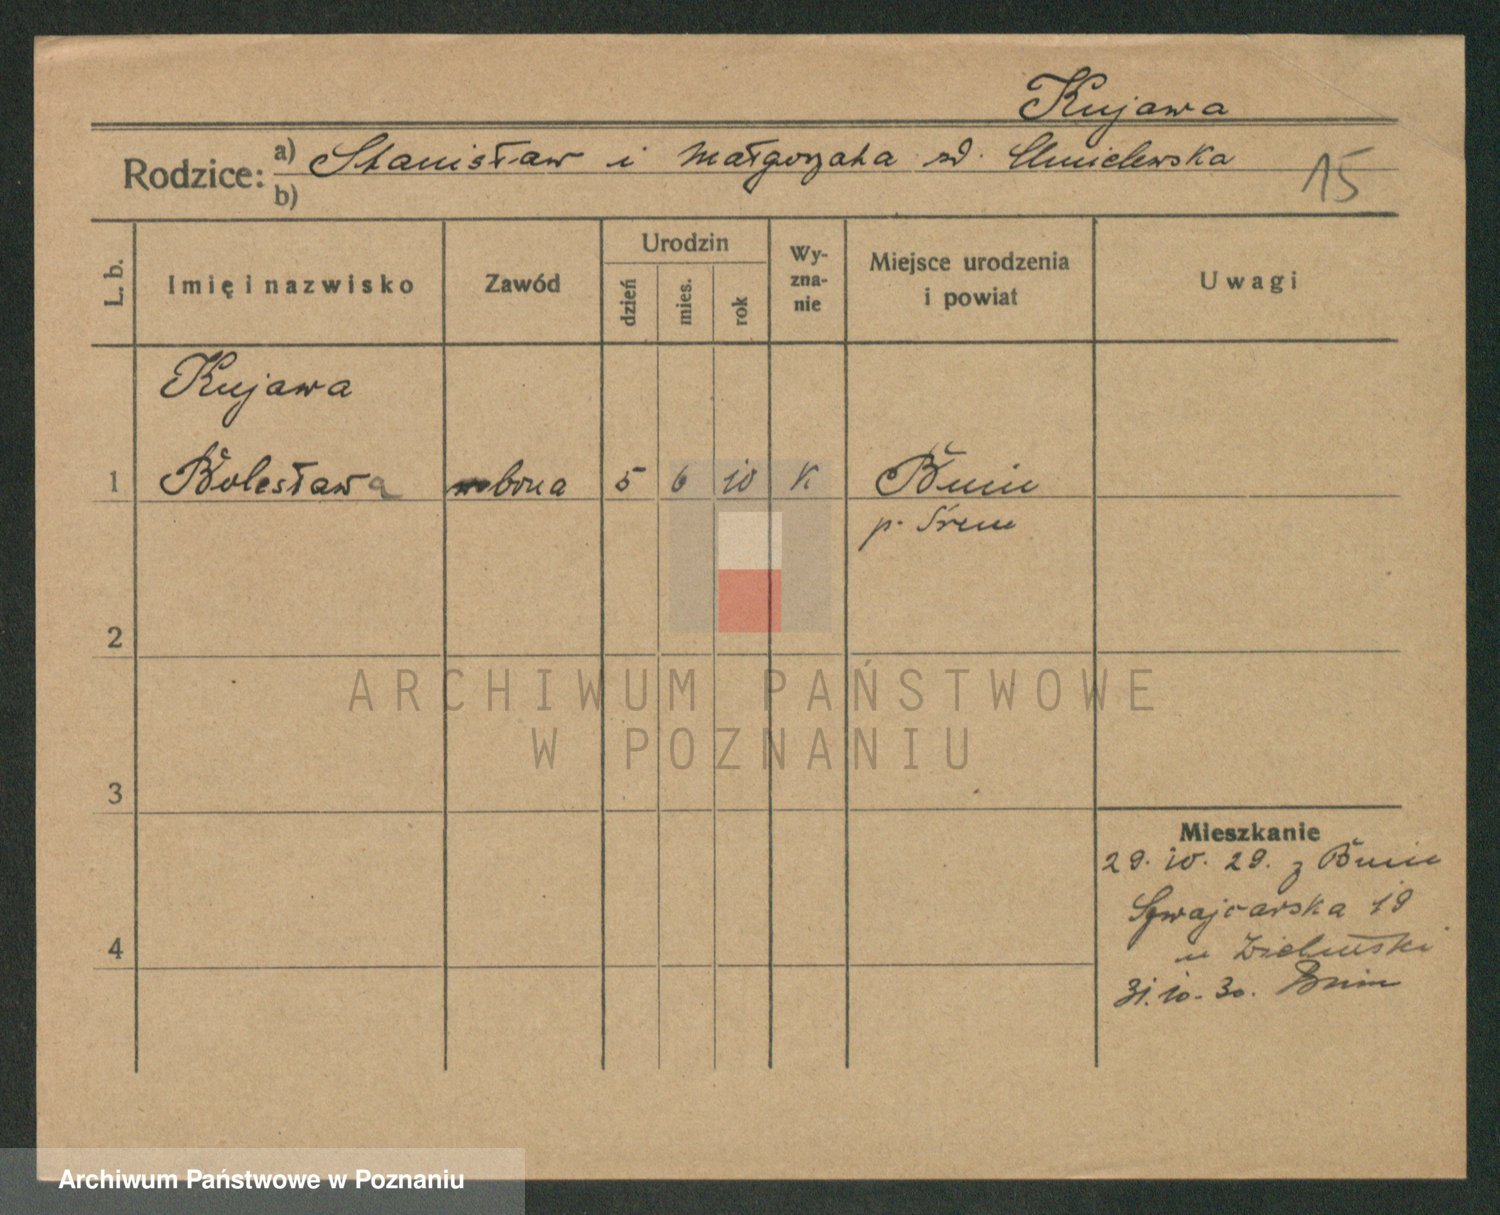 Kujawa
Rodzice: a) Stanisław i Małgorzata zd. Chmielewska
b)
15
L. b.
Imię i nazwisko
Zawód
Urodzin
dzień
mies.
rok
Wy-
zna-
nie
Miejsce urodzenia
i powiat
Uwagi
Kujawa
1 Bolesława bona 5 6 10 K Bnin
p. Śrem
2
3
4
ARCHIWUM PAŃSTWOWE
W POZNANIU
Mieszkanie
29. 10. 29. z Bnin
Szwajcarska 19
u
31. 10. 30. Bnin
Archiwum Państwowe w Poznaniu